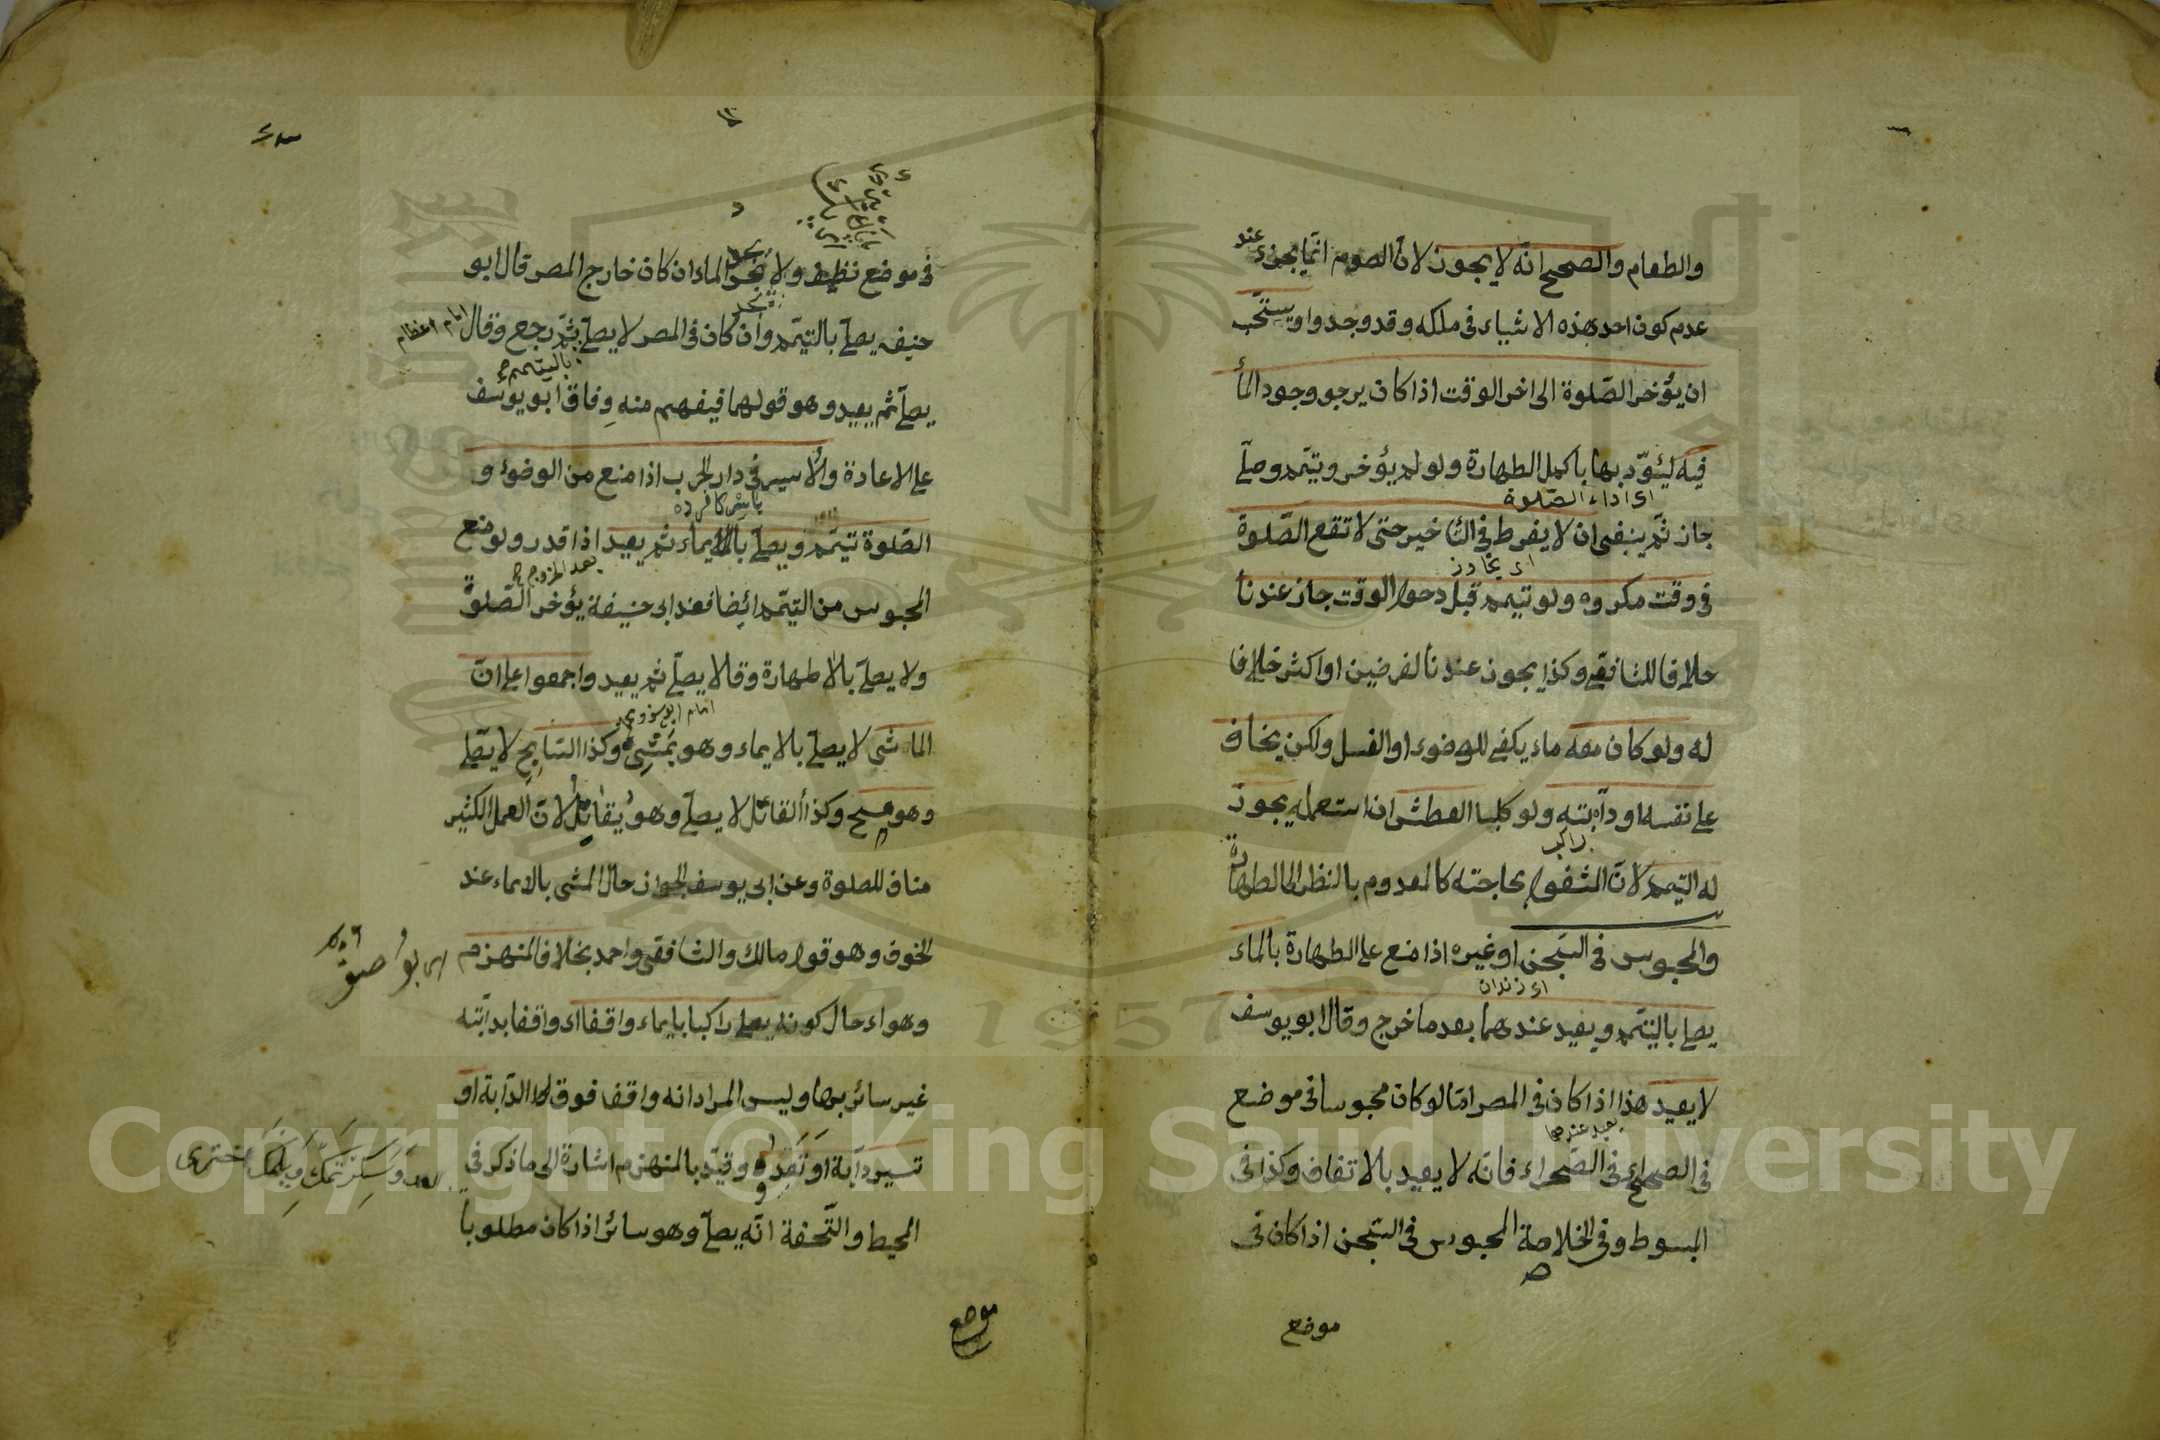 والطعام والصحيح انه لا يجوز لان الصوم انما يجزئ عند
عدم كون احد هذه الاشياء فى ملكه وقد وجدوا ويستحب
ان يؤخر الصلوة الى اخر الوقت اذا كان يرجو وجود الماء
فيه ليؤد بها باكمل الطهارة ولو لم يؤخر وتيمم وصلى
اى اداء الصلوة
جاز ثم ينبغى ان لا يفرط فى التأخير حتى لا تقع الصلوة
فى وقت مكروه ولو تيمم قبل دخول الوقت جاز عندنا
خلافا للشافعى وكذا يجوز عندنا لفرضين او اكثر خلافا
له ولو كان معه ماء يكفى للوضوء او الغسل ولكن يخاف
على نفسه او دآبته ولو كلبا العطش ان استعمله يجوز
له التيمم لان المشغول بحاجته كالمعدوم بالنظر الى الطهارة
والمحبوس فى السجن او غيره اذا منع على الطهارة بالماء
اى زندان
يصلى بالتيمم ويعيد عندهما بعد ما خرج وقال ابو يوسف
لا يعيد هذا اذا كان فى المصر امّا لو كان محبوسا فى موضع
يعيد عندهما
فى الصحراء فى الصحراء فانه لا يعيد بالاتفاق وكذا فى
المبسوط وفى الخلاصة المحبوس فى السجن اذا كان فى
موضع
فى موضع نظيف ولا يجد الماء ان كان خارج المصر قال ابو
حنيفه يصلى بالتيمم وان كان فى المصر لا يصلى ثم رجع وقال
امام اعظم
بالتيمم
يصلى ثم يعيد وهو قولهما فيفهم منه وفاق ابو يوسف
على الاعادة والاسير فى دار الحرب اذا منع من الوضوء و
الصلوة تيمم ويصلى بالايماء ثم يعيد اذا قدر ولو منع
بعد الخروج
المحبوس من التيمم ايضا فعند ابى حنيفة يؤخر الصلوة
ولا يصلى بلا طهارة وقالا يصلى ثم يعيد واجمعوا على ان
الماشى لا يصلى بالايماء وهو يمشى وكذا السابح لا يصلى
وهو يسبح وكذا القاتل لا يصلى وهو يقاتل لان العمل الكثير
مناف للصلوة وعن ابى يوسف الجواز حال المشى بالايماء عند
الخوف وهو قول مالك والشافعى واحمد بخلاف المنهزم
وهو اء حال كونه يصلى راكبا بايماء واقفا اء واقفا بدآبته
غير سائر بها وليس المراد انه واقف فوق الدآبة او
تسير دآبة او تعد و وقيد بالمنهزم اشارة الى ما ذكر فى
المحيط والتحفة انه يصلى وهو سائر اذا كان مطلوبا
موضع
Copyright © King Saud University
1957